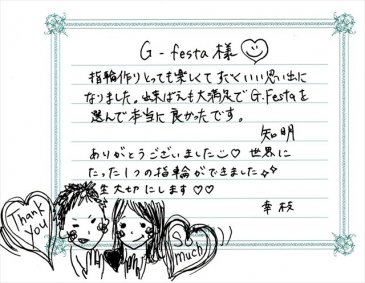 G-festa様
指輪作りとっても楽しくてすごくいい思い出に
なりました。出来ばえも大満足でG.Festaを
選んで本当に良かったです。
知明
ありがとうございました♡ 世界に
たった1つの指輪ができました
一生大切にします♡♡
幸枝
Thank you
So much